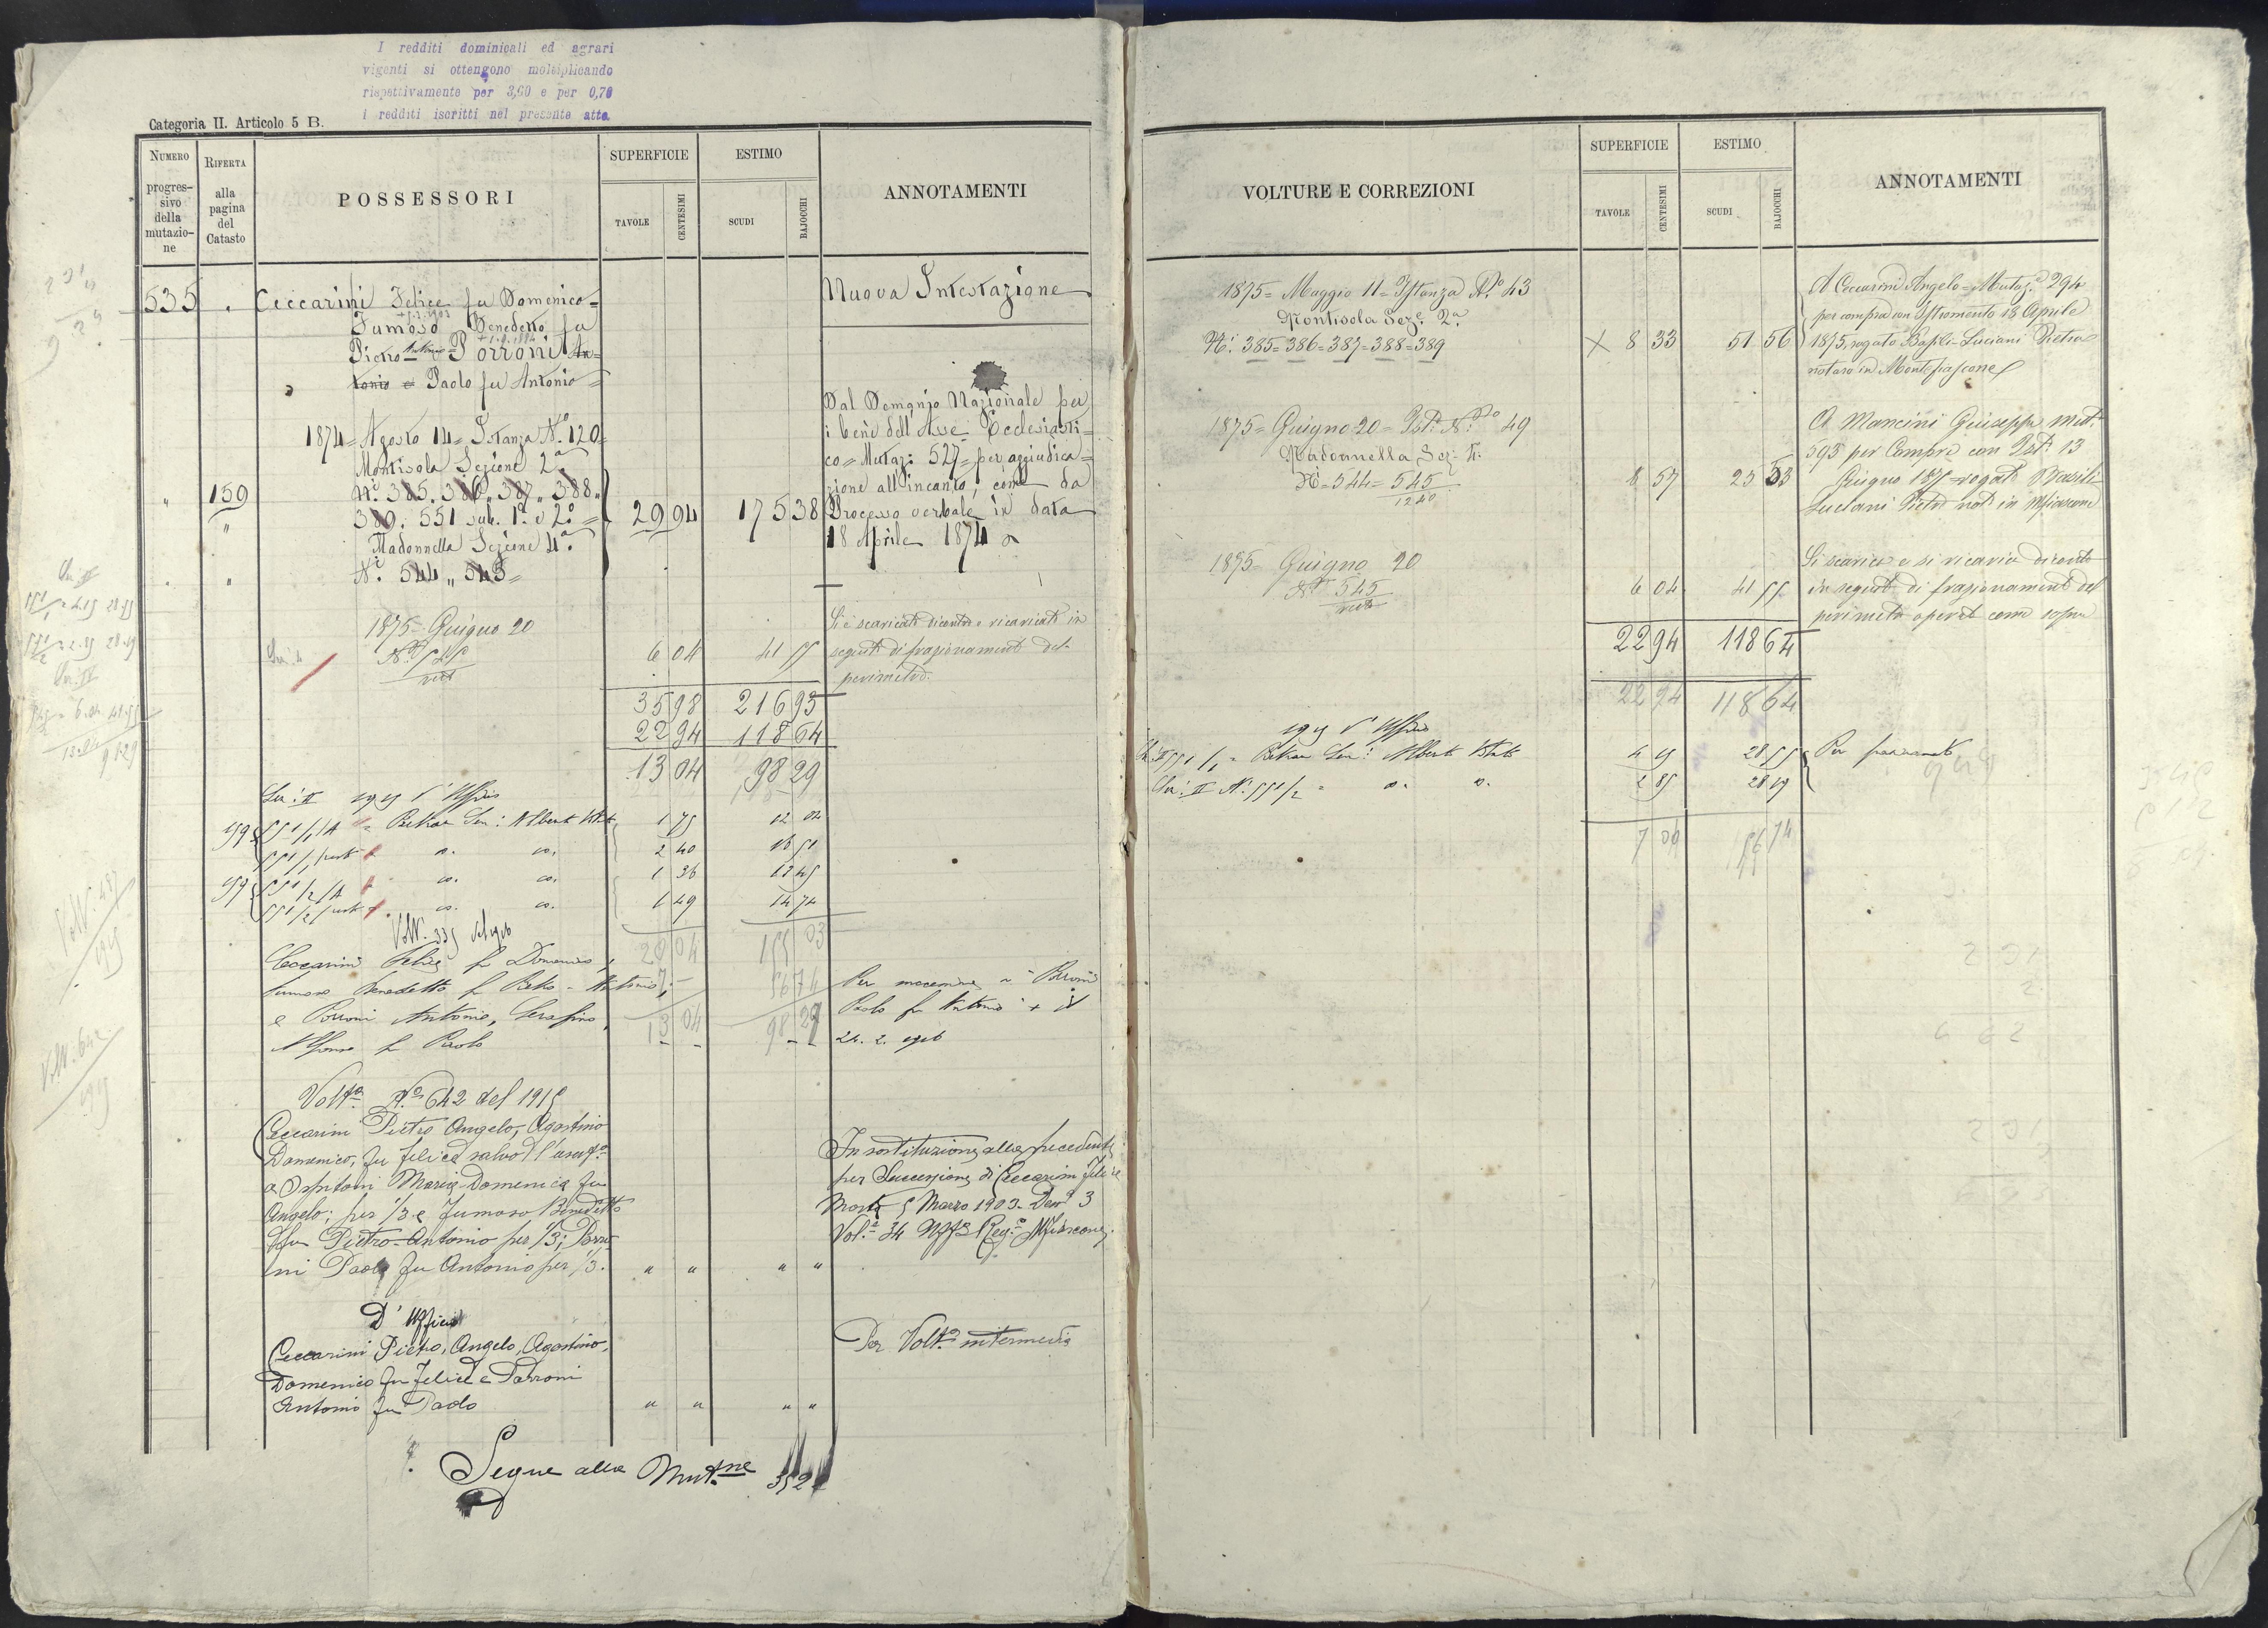 I redditi dominicali ed agrari
vigenti si ottengono moltiplicando
rispettivamente per 3,60 e per 0,70
i redditi iscritti nel presente atto.
Categoria II. Articolo 5 B.
NUMERO progres-sivo della mutazio-ne
RIFERTA alla pagina del Catasto
POSSESSORI
SUPERFICIE
TAVOLE
CENTESIMI
ESTIMO
SCUDI
BAJOCCHI
ANNOTAMENTI
535
Ceccarini Felice fu Domenico=
Fumoso Benedetto fu
Pietro Antonio Porroni An=
tonio e Paolo fu Antonio=
Nuova Intestazione
1874= Agosto 14= Istanza N.o 120=
Montisola Sezione 2a
159 N.i 385. 386,, 387,, 388,,
389. 551 sub. 1o e 2o= 29 94 175 38
Madonnella Sezione 4a.
N.i 544,, 545=
Dal Demanio Nazionale per
i beni dell'Asse Ecclesiasti=
co= Mutaz: 527= per aggiudica=
zione all'incanto, come da
Processo verbale in data
18 Aprile 1874
1875= Giugno 20
N.o 545 6 04 41 55
Si è scaricato dicontro e ricaricato in
seguito di frazionamento del
perimetro.
35 98 216 93
22 94 118 64
13 04 98 29
Sez: II 1915 d'Uffizio
159 551/1/A 1 75 12 04
551/1/rest 2 40 16 51
159 551/2/A 1 36 13 45
551/2/rest 1 49 14 74
20 04 155 03
Ceccarini Felice fu Domenico,
Fumoso Benedetto fu Pietro-Antonio; 7 56 74
e Porroni Antonio, Serafino, 13 04 98 29
Alfonso fu Paolo
Per successione a Porroni
Paolo fu Antonio + il
24. 2.
Volt.a N.o 642 del 1915
Ceccarini Pietro Angelo, Agostino
Domenico, fu Felice salvo l'usuf.o
a Maria Domenica fu
Angelo; per 1/3 e Fumoso Benedetto
fu Pietro-Antonio per 1/3; Porro-
ni Paolo fu Antonio per 1/3. " " " "
In sostituzione alla precedente
per Successione di Ceccarini Felice
Morto 5 Marzo 1903. Den.a 3
Vol.e 34 Uff.o Reg.o Mfiascone.
D'Ufficio
Ceccarini Pietro, Angelo, Agostino,
Domenico fu Felice e Porroni
Antonio fu Paolo " " " "
Per Volt.a intermedia
Segue alla Mut.ne
VOLTURE E CORREZIONI
SUPERFICIE
TAVOLE
CENTESIMI
ESTIMO
SCUDI
BAJOCCHI
ANNOTAMENTI
1875= Maggio 11= Istanza N.o 43
Montisola Sez.e 2.a
N.i 385=386=387=388=389 X 8 33 51 56
A Ceccarini Angelo= Mutaz.e 294
per compra con Istromento 18 Aprile
1875, rogato Basili-Luciani Pietro
notaro in Montefiascone
1875= Giugno 20= Ist.a N.o 49
Madonnella Sez: 4.
N.i= 544= 545 8 57 25 53
A Mancini Giuseppe Mut.e
593 per Compra con Ist.o 13
Giugno 1875 rogato Basili
Luciani Pietro not. in Mfiascone
1875= Giugno 20
N.o 545 6 04 41 55
Si scarica e si ricarica dicontro
in seguito di frazionamento del
perimetro operato come sopra
22 94 118 64
22 94 118 64
1915 d'Uffizio
Sez: II 551/1 4 15 28 55
Sez: II N. 551/2 2 85 28 19
Per frazionamento
7 00 56 74
Volt. 487
1915
Volt. 642
1915